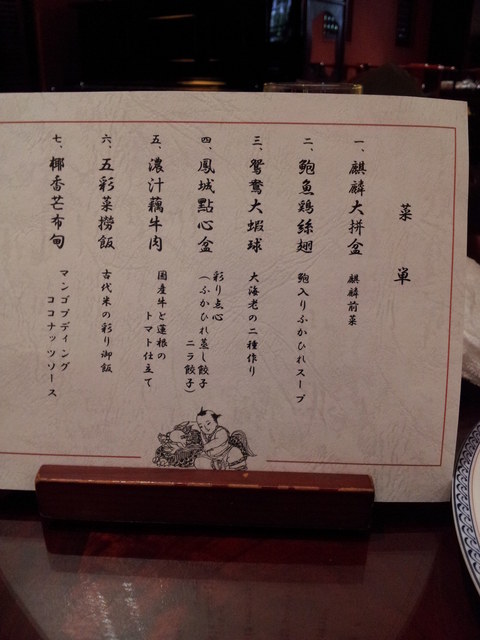 菜単
一、麒麟大拼盆
麒麟前菜
二、鮑魚鶏絲翅
鮑入りふかひれスープ
三、鴛鴦大蝦球
大海老の二種作り
四、鳳城點心盆
彩り点心
(ふかひれ蒸し餃子
ニラ餃子)
五、濃汁藕牛肉
国産牛と蓮根の
トマト仕立て
六、五彩菜撈飯
古代米の彩り御飯
七、椰香芒布甸
マンゴプディング
ココナッツソース